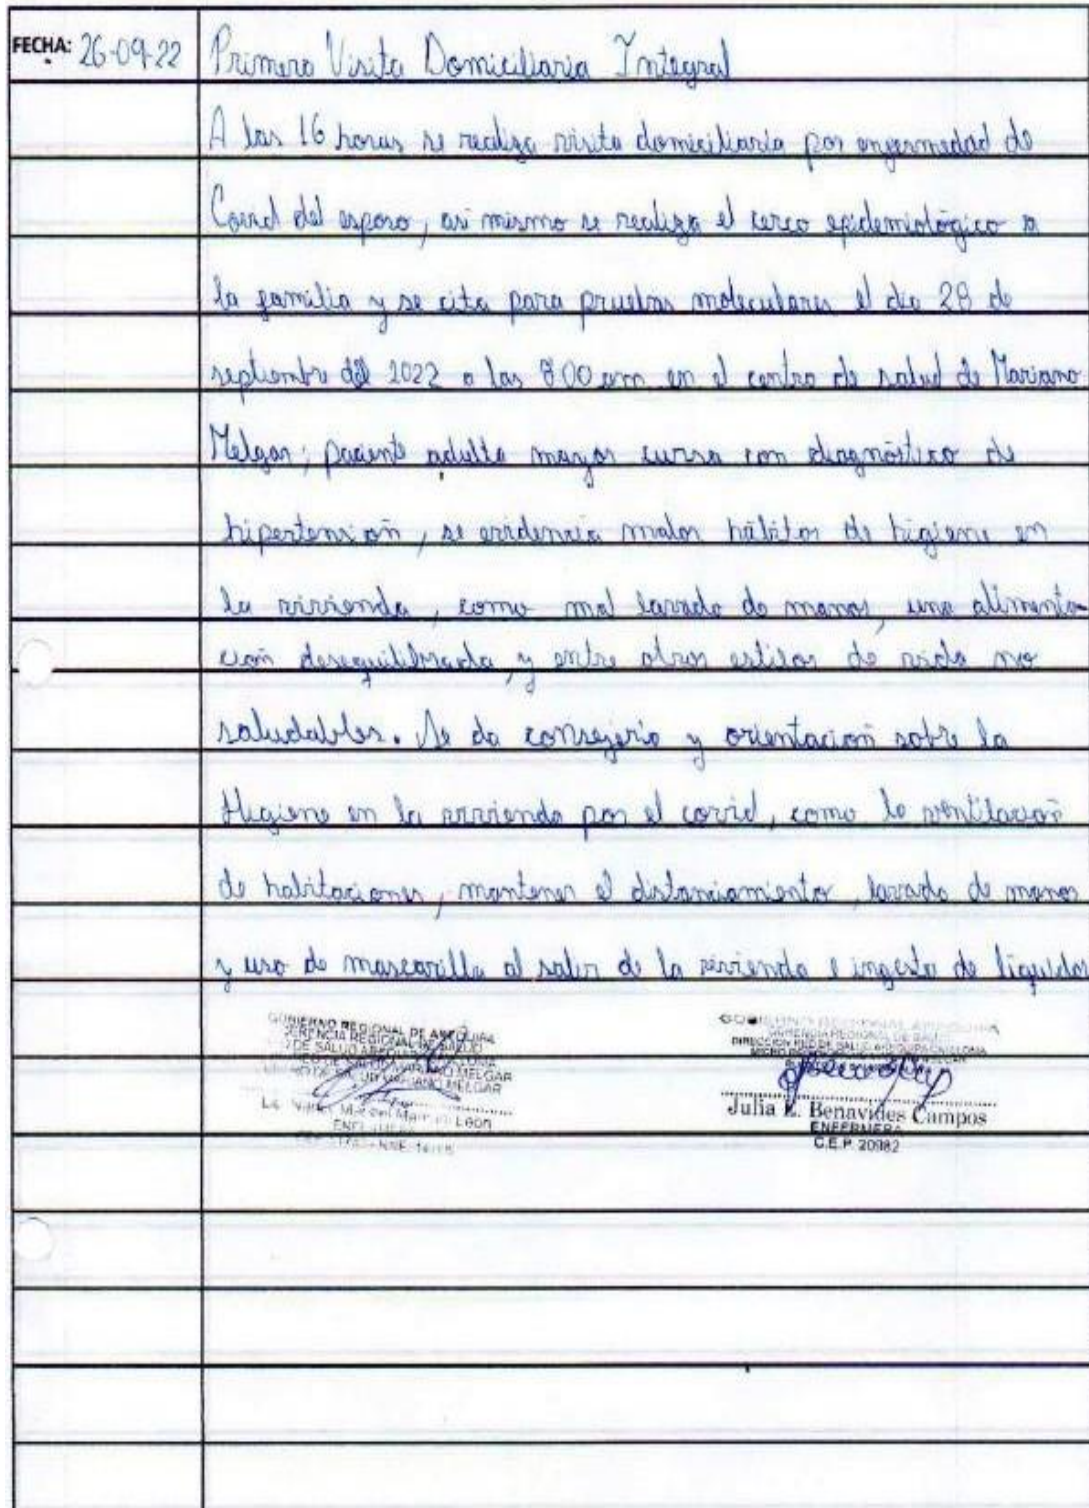 FECHA: 26-09-22 Primera Visita Domiciliaria Integral
A las 16 horas se realiza visita domiciliaria por enfermedad de
Covid del esposo, asi mismo se realiza el cerco epidemiológico a
la familia y se cita para pruebas moleculares el dia 28 de
septiembre del 2022 a las 8:00 am en el centro de salud de Mariano
Melgar; paciente adulta mayor cursa con diagnóstico de
hipertensión, se evidencia malos hábitos de higiene en
la vivienda, como mal lavado de manos, una alimenta
ción desequilibrada, y entre otros estilos de vida no
saludables. Se da consejería y orientación sobre la
Higiene en la vivienda por el covid, como la ventilación
de habitaciones, mantener el distanciamiento, lavado de manos
y uso de mascarilla al salir de la vivienda e ingesta de liquidos
GOBIERNO REGIONAL DE AREQUIPA
GERENCIA REGIONAL DE SALUD
MARIANO MELGAR
ENFERMERA
Julia E. Benavides Campos
ENFERMERA
C.E.P. 20982